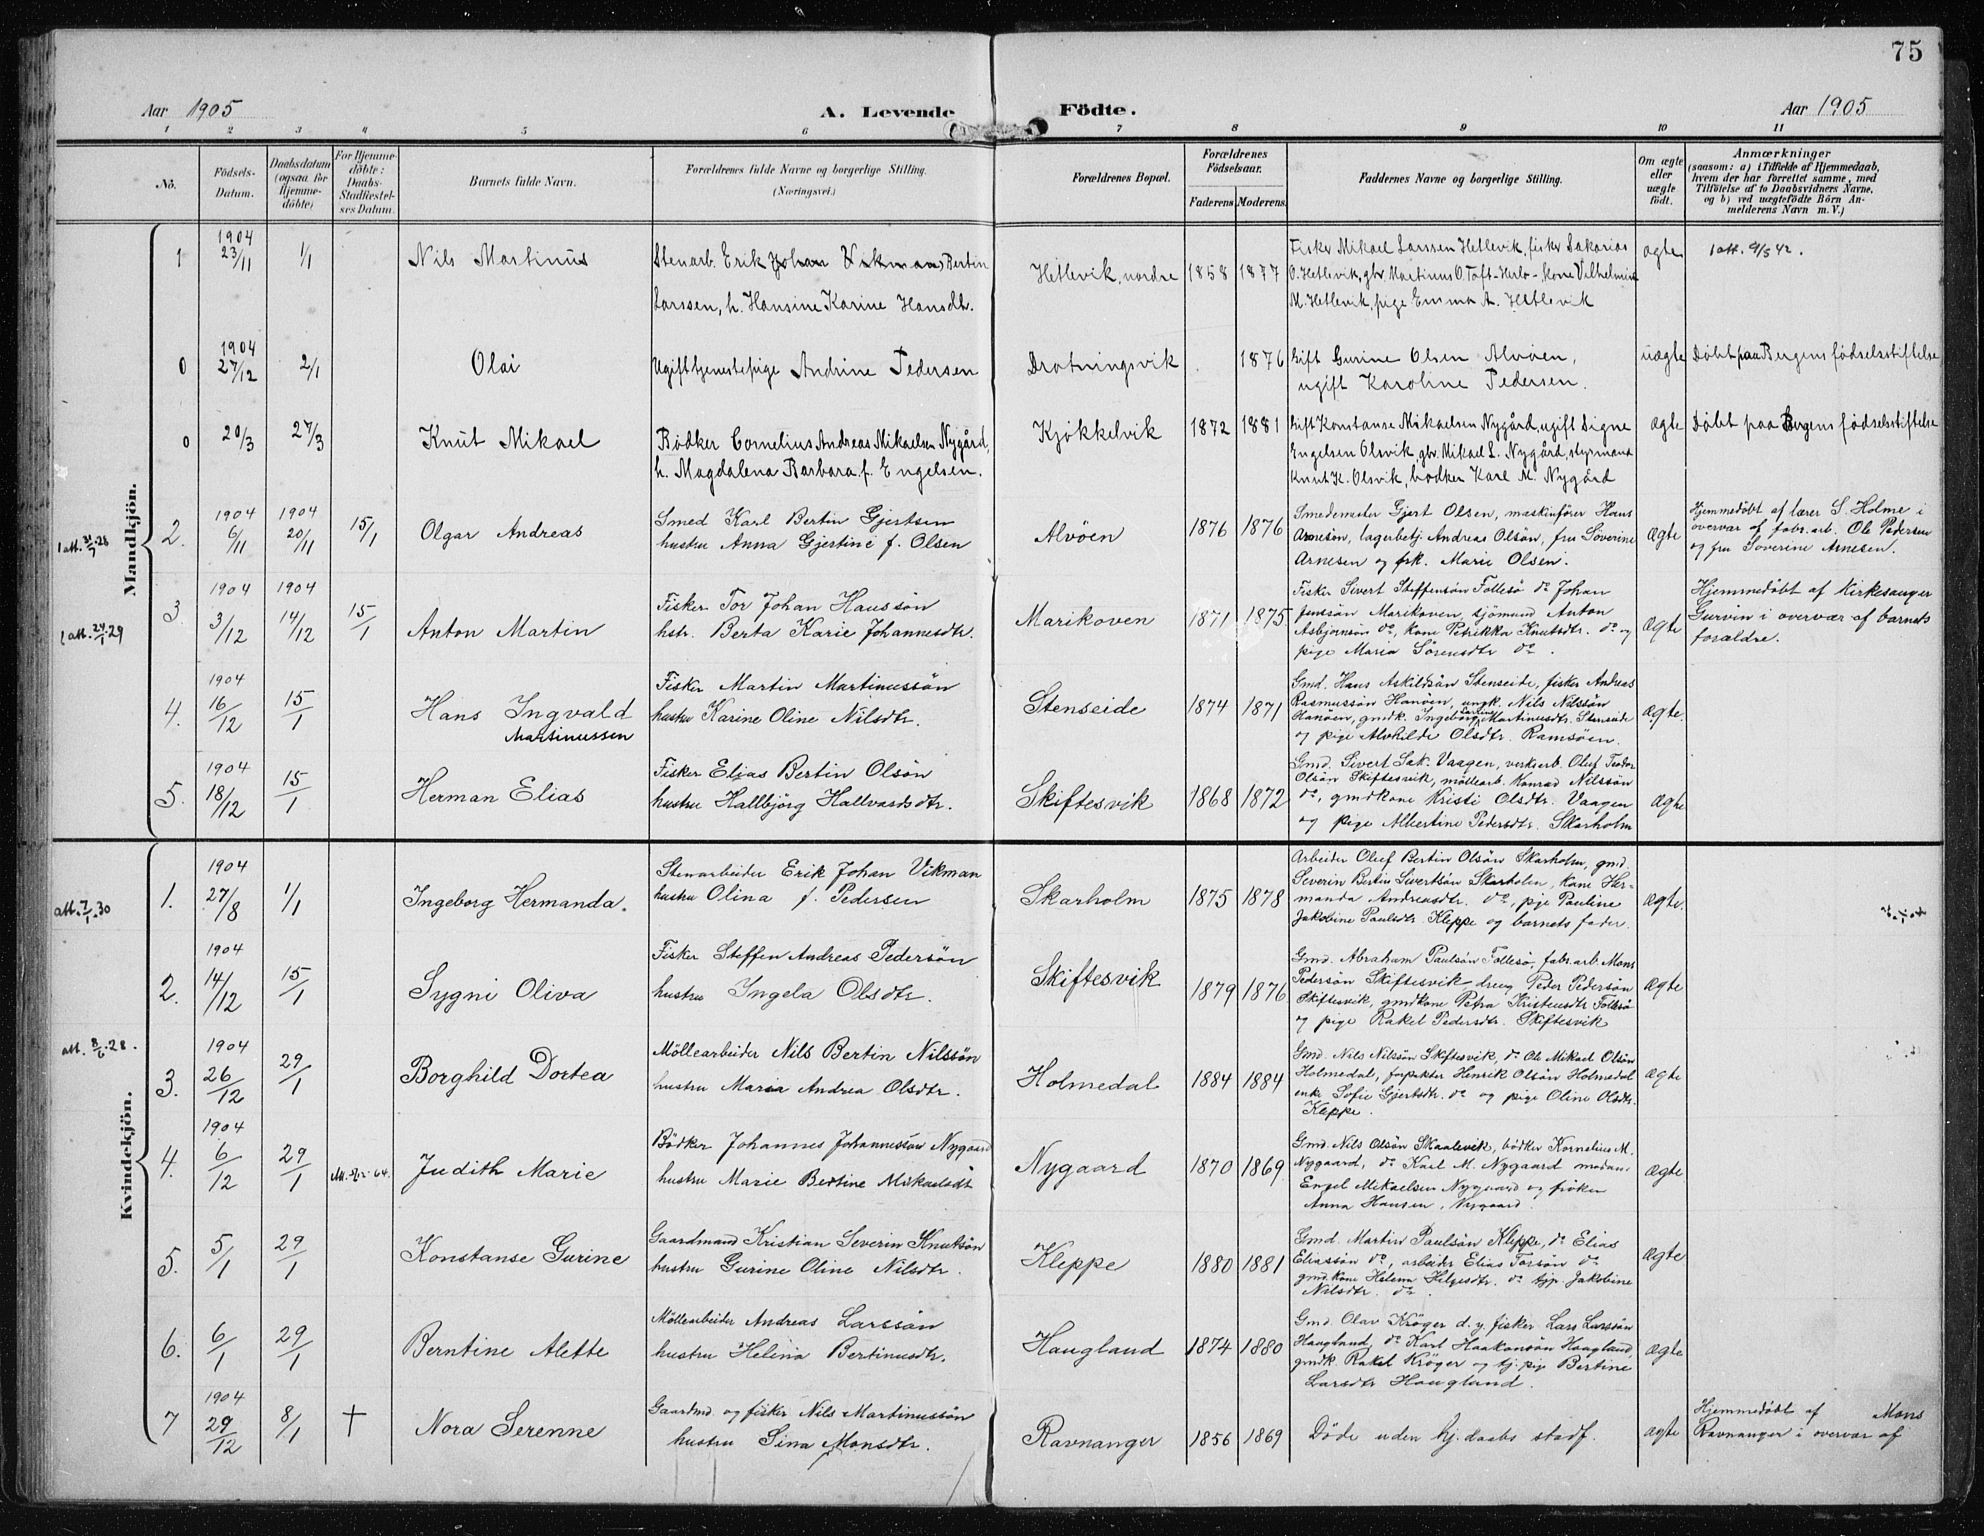 75
Aar 1905 A. Levende Födte. Aar 1905
1 2 3 4 5 6 7 8 9 10 11
No.
Födsels-Datum.
Daabsdatum (ogsaa for Hjemmedöbte)
For Hjemmedöbte: Daabs-Stadfæstelses Datum.
Barnets fulde Navn.
Forældrenes fulde Navne og borgerlige Stilling.
(Næringsvei.)
Forældrenes Bopæl.
Forældrenes Födselsaar.
Faderens. Moderens.
Faddernes Navne og borgerlige Stilling.
Om ægte eller uægte födt.
Anmærkninger
(saasom: a) i Tilfælde af Hjemmedaab,
hvem der har forrettet samme, med
Tilföielse af to Daabsvidners Navne,
og b) ved uægtefödte Börn An-
melderens Navn m. V.)
Mandkjön.
1 1904 23/11 1/1 Nils Martinus
Stenarb. Erik Johan Vikman Bertin
Larssen, h. Hansine Karine Hansdt.
Hetlevik, nordre 1858 1877
Fisker Mikael Larssen Hetlevik, fisker Sakarias
O. Hetlevik, gbr Martinus O. Toft-Herlö-, kone Vilhelmine
M. Hetlevik, pige Emma A. Hetlevik
ægte
1 att. 9/5 42.
0 1904 27/12 2/1 Olai
Ugift tjenestepige Andrine Pedersen
Drotningsvik 1876
Gift Gurine Olsen Alvöen,
ugift Karoline Pedersen.
uægte
Döbt paa Bergens födselsstiftelse
0 20/3 27/3 Knut Mikael
Bödker Cornelius Andreas Mikaelsen Nygård,
h. Magdalena Barbara f. Engelsen.
Kjökkelvik 1872 1881
Gift Konstanse Mikaelsen Nygård, ugift Signe
Engelsen Olsvik, gbr. Mikael L. Nygård, styrmand
Knut K. Olsvik, bödker Karl M. Nygård
ægte
Döbt paa Bergens födselsstiftelse
1 att. 31/7 28
2. 1904 6/11 1904 20/11 15/1 Olgar Andreas
Smed Karl Bertin Gjertsen
hustru Anna Gjertine f. Olsen
Alvöen 1876 1876
Smedemester Gjert Olsen, maskinförer Hans
Arnesön, lagerbetj. Andreas Olsön, fru Söverine
Arnesen og frk. Marie Olsen.
Ægte
Hjemmedöbt af lærer S. Holme i
overvær af fabr. arb. Ole Pedersen
og fru Soverine Arnesen.
1 att. 24/1 29
3. 1904 3/12 1904 14/12 15/1 Anton Martin
Fisker Tor Johan Haussön
hstr. Berta Karie Johannesdtr.
Marikoven 1871 1875
Fisker Sivert Steffensön Follesö do Johan
Jenssön Marikoven, sjömand Anton
Asbjörnsön do, kone Petrikka Knutsdtr. do og
pige Maria Sörensdtr do.
Ægte
Hjemmedöbt af Kirkesanger
Gurvin i overvær af barnets
forældre.
4. 1904 16/12 15/1 Hans Ingvald
Martinussen
Fisker Martin Martinussön
hustru Karine Oline Nilsdtr.
Stenseide 1874 1871
Gmd. Hans Askildsön Stenseide, fisker Andreas
Rasmussön Hanöen, ungk. Nils Nilssön
Hanöen, gmdk. Ingeborg Martinusdtr. Stenseide
og pige Alvhilde Olsdtr. Ramsöen.
Ægte.
5. 1904 18/12 15/1 Herman Elias
Fisker Elias Bertin Olsön
hustru Hallbjörg Hallvardsdtr.
Skiftesvik 1868 1872
Gmd. Sivert Sak. Vaagen, verksarb. Oluf Teodor
Olsön Skiftesvik, möllearb. Konrad Nilssön
do, gmdkone Kristi Olsdtr. Vaagen
og pige Albertine Pedersdtr. Skarholm
Ægte
Kvindekjön.
att. 7/1 30
1. 1904 27/8 1/1 Ingeborg Hermanda.
Stenarbeider Erik Johan Vikman
hustru Olina f. Pedersen
Skarholm 1875 1878
Arbeider Oluf Bertin Olsön Skarholm, gmd.
Severin Bertin Sivertsön Skarholm, kone Her-
manda Andreasdtr. do, pige Pauline
Jakobine Paulsdtr. Kleppe og barnets fader.
Ægte.
2. 1904 14/12 15/1 Sygni Oliva
Fisker Steffen Andreas Pedersön
hustru Ingela Olsdtr.
Skiftesvik 1879 1876
Gmd. Abraham Paulsön Follesö, fabr. arb. Mons
Pedersön Skiftesvik, dreng Peder Pedersön
Skiftesvik, gmdkone Petra Kristensdtr Follesö
og pige Rakel Pedersdtr. Skiftesvik
Ægte
att. 8/6 28.
3. 1904 26/12 29/1 Borghild Dortea
Möllearbeider Nils Bertin Nilssön
hustru Maria Andrea Olsdtr.
Holmedal 1884 1884
Gmd. Nils Nilssön Skiftesvik, do Ole Mikael Olsön
Holmedal, forpakter Henrik Olsön Holmedal
enke Sofie Gjertsdtr. do og pige Oline Olsdtr.
Kleppe.
Ægte
4. 1904 6/12 29/1 Judith Marie
Bödker Johannes Johannessön Nygaard
hustru Marie Bertine Mikaelsdt
Nygaard 1870 1869
Gmd. Nils Olsön Skaalevik, bödker Kornelius M.
Nygaard, do Karl M. Nygaard madam
Engel Mikaelsen Nygaard og fröken
Anna Hansen, Nygaard.
Ægte
5. 5/1 29/1 Konstanse Gurine
Gaardmand Kristian Severin Knutsön
hustru Gurine Oline Nilsdtr.
Kleppe 1880 1881
Gmd. Martin Paulsön Kleppe, do Elias
Eliassön do, arbeider Elias Torsön do
gmd. kone Helena Helgesdtr. do tjp. Jakobine
Nilsdtr. do.
Ægte
6. 6/1 29/1 Berntine Alette
Möllearbeider Andreas Larssön
hustru Helina Bertinusdtr.
Haugland 1874 1880
Gmd. Olav Kröger d. y. fisker Lars Larssön
Haugland, do Karl Haakonsön Haugland,
gmdk. Rakel Kröger og tj. pige Bertine
Larsdtr Haugland.
Ægte
7 1904 29/12 8/1 † Nora Serenne
Gaardmd. og fisker Nils Martinussön
hustru Sina Monsdtr.
Ravnanger 1856 1869
Döde uden hj. daabs stadf.
ægte
Hjemmedöbt af Mons
Ravnanger i overvær af